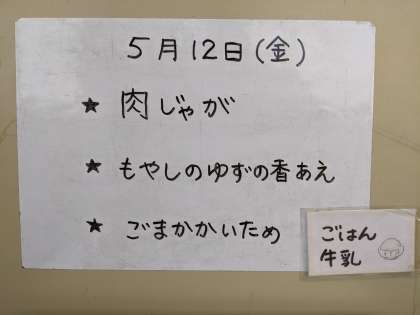 5月12日(金)
★ 肉じゃが
★ もやしのゆずの香あえ
★ ごまかかいため
ごはん
牛乳